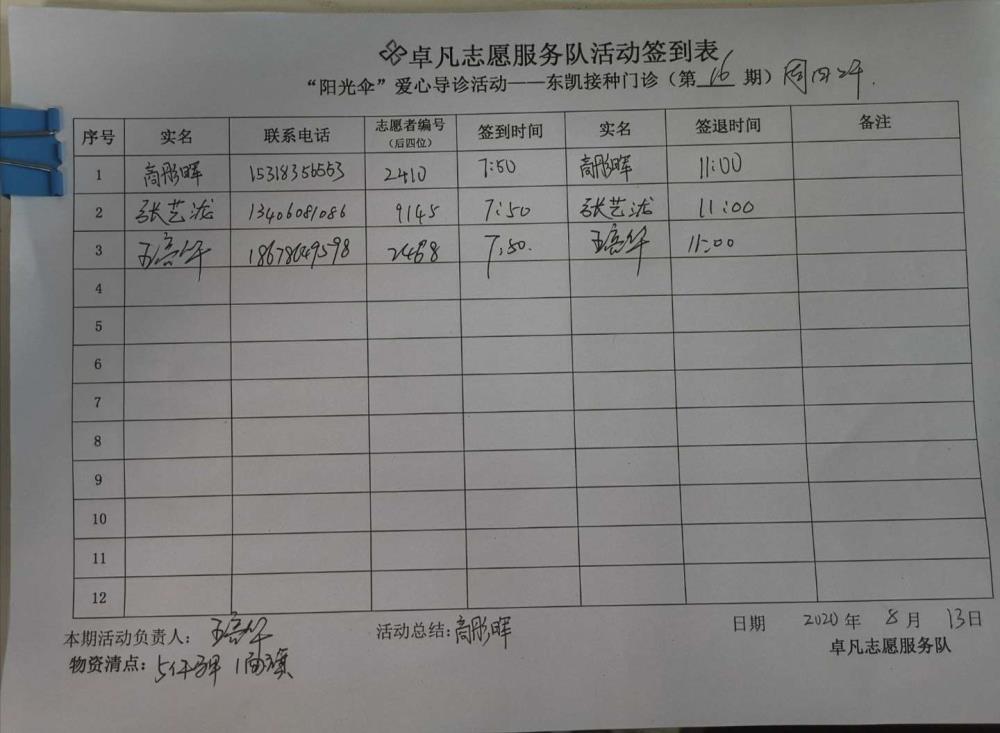 卓凡志愿服务队活动签到表
“阳光伞”爱心导诊活动——东凯接种门诊（第 16 期）周四上午.
序号 实名 联系电话 志愿者编号（后四位） 签到时间 实名 签退时间 备注
1 高彤晖 15318356553 2410 7:50 高彤晖 11:00
2 张艺泷 13406081086 9145 7:50 张艺泷 11:00
3 18678049598 2468 7:50. 11:00
4
5
6
7
8
9
10
11
12
本期活动负责人： 活动总结:高彤晖 日期 2020 年 8 月 13 日
物资清点： 1面旗 卓凡志愿服务队